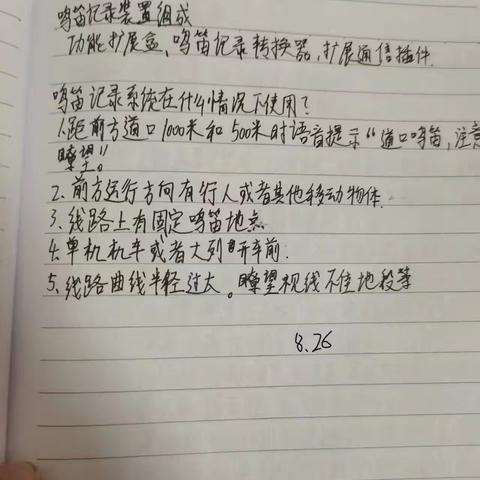 鸣笛记录装置组成
功能扩展盒、鸣笛记录转换器,扩展通信插件.
鸣笛记录系统在什么情况下使用？
1.距前方道口1000米和500米时语音提示“道口鸣笛,注意
瞭望”。
2.前方运行方向有行人或者其他移动物体.
3、线路上有固定鸣笛地点
4.单机机车或者大列开车前.
5、线路曲线半径过大。瞭望视线不佳地段等
8.26